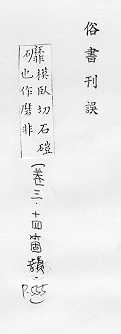 俗書刊誤
䃺模臥切石磑
也作磨非
(卷三·十四箇韻·P.555)